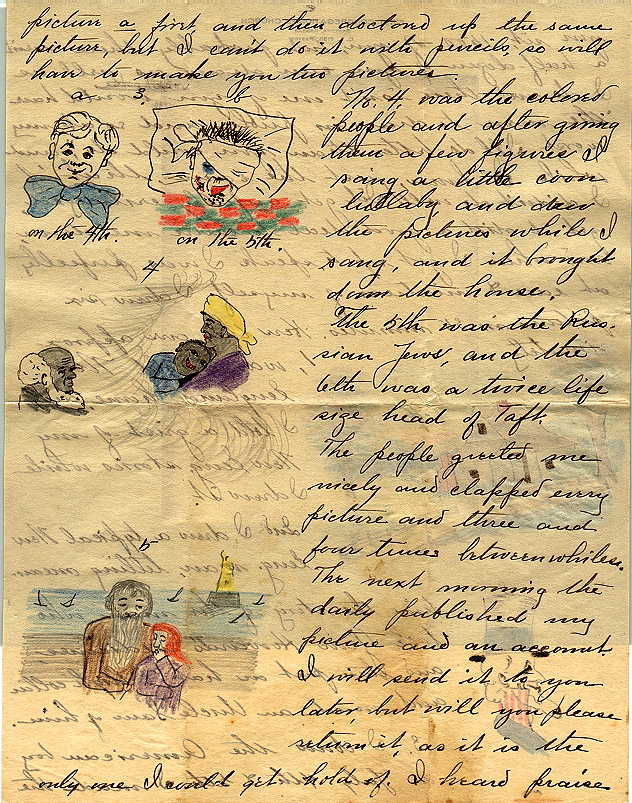 picture a first and then doctored up the same
picture, but I can't do it with pencils, so will
have to make you two pictures.
a 3. b
on the 4th.
on the 5th.
4
No. 4, was the colored
people and after giving
them a few figures I
sang a little coon
lullaby and drew
the pictures while I
sang, and it brought
down the house.
The 5th was the Rus-
sian Jews, and the
6th was a twice life
size head of Taft.
5
The people greeted me
nicely and clapped every
picture and three and
four times betweenwhiles.
The next morning the
daily published my
picture and an account.
I will send it to you
later, but will you please
return it, as it is the
only one I could get hold of. I heard praise